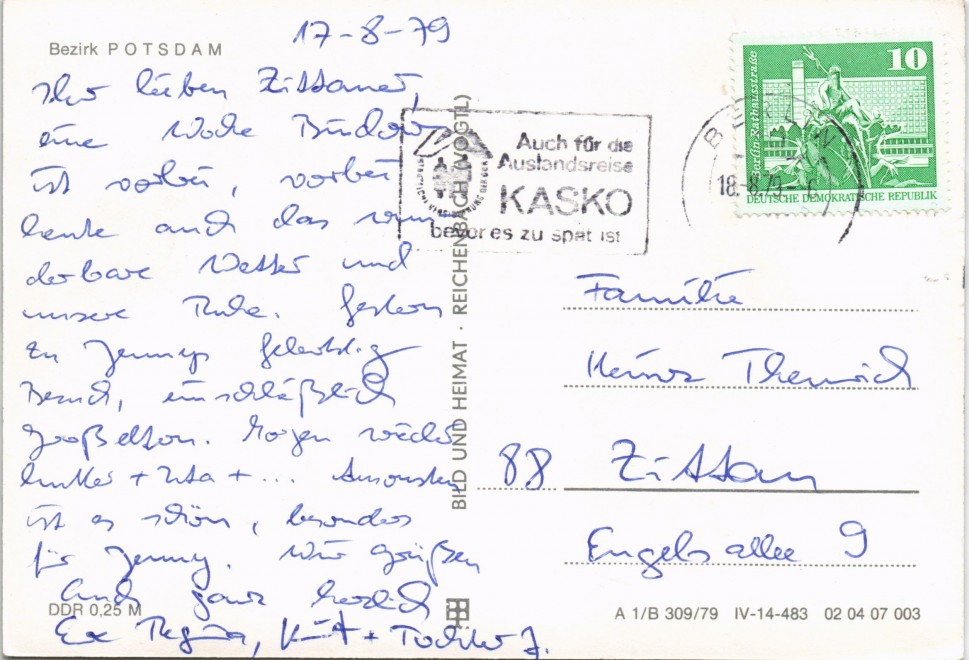 Bezirk POTSDAM
17-8-79
Ihr lieben Zittauer,
eine Woche Bindow
ist vorbei, vorbei
heute auch das wun
derbare Wetter und
unsere Ruhe. Gestern
zu Jennys Geburtstag
Besuch, einschläßlich
Großeltern. Morgen wieder
+ Uta + ... Ansonsten
ist es schön, besonders
für Jenny. Wir grüßen
Euch ganz herzlich
Eure Regina, + Tochter J.
DDR 0,25 M
BILD UND HEIMAT · REICHENBACH (VOGTL)
Auch für die
Auslandsreise
KASKO
bevor es zu spät ist
BERLIN
18.-8.79
10
Berlin Rathausstraße
DEUTSCHE DEMOKRATISCHE REPUBLIK
Familie
Heinz
88 Zittau
Engelsallee 9
A 1/B 309/79 IV-14-483 02 04 07 003